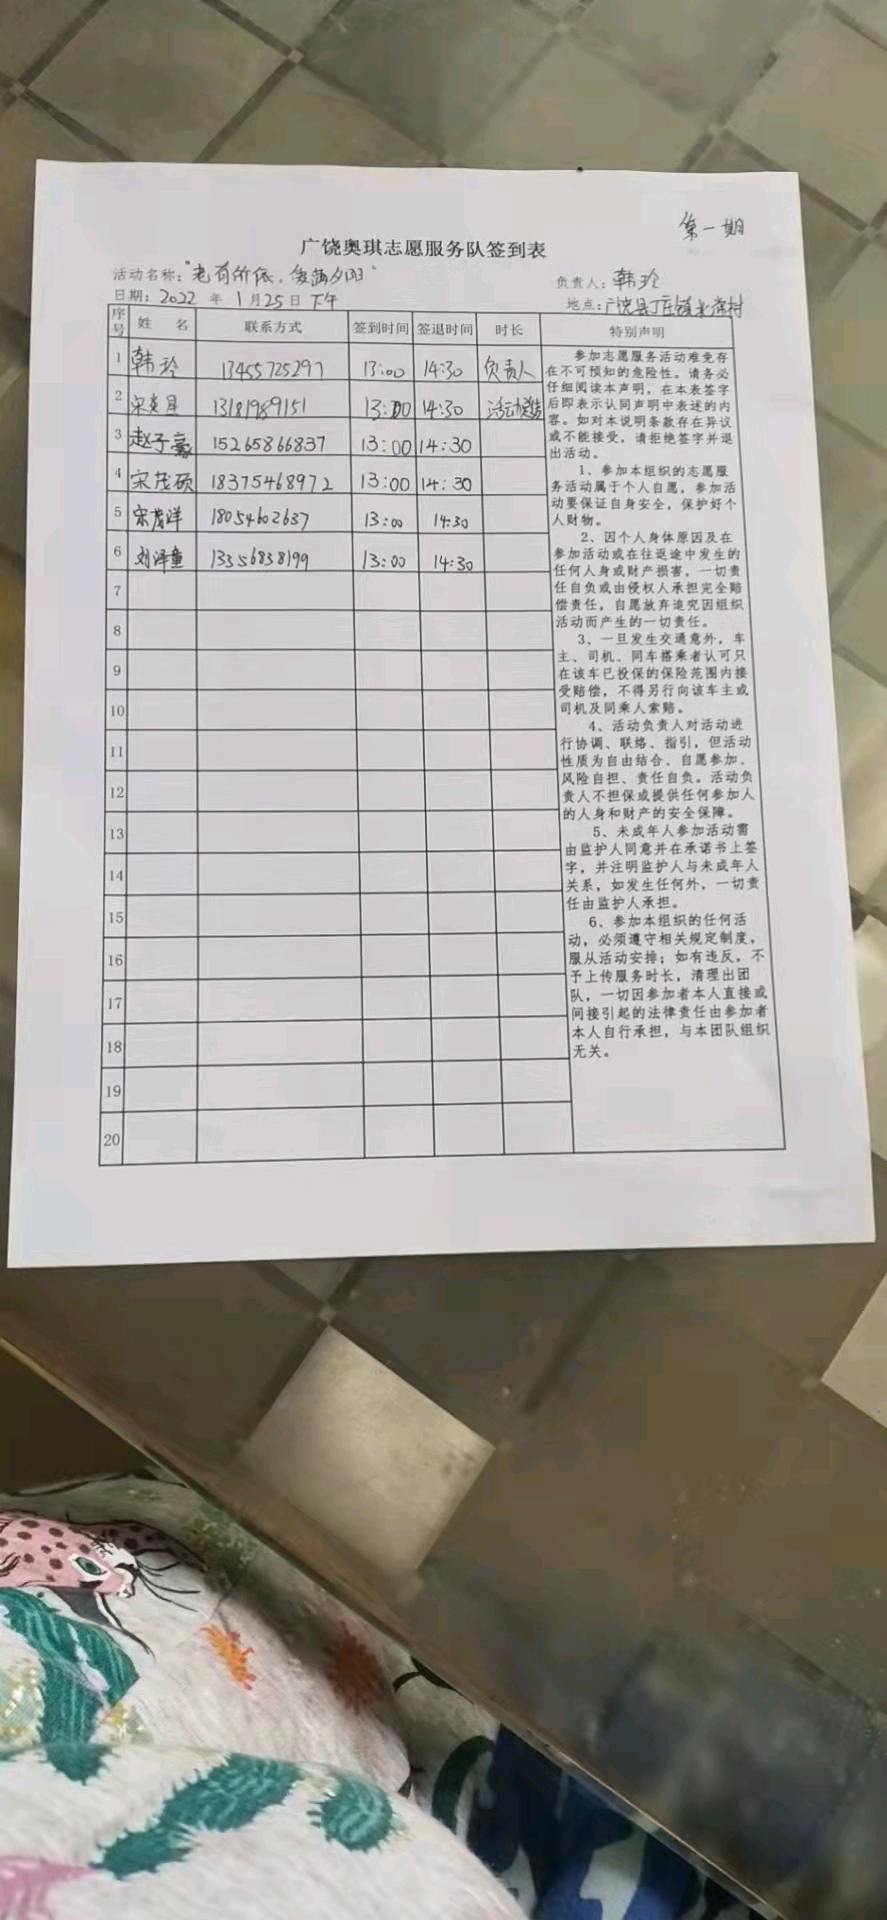 第一期
广饶奥琪志愿服务队签到表
活动名称："老有所依，爱满夕阳" 负责人：韩玲
日期：2022年1月25日下午 地点：广饶县丁庄镇
序号 姓名 联系方式 签到时间 签退时间 时长 特别声明
1 韩玲 13455725297 13:00 14:30 负责人
2 13181989151 13:00 14:30
3 赵子豪 15265866837 13:00 14:30
4 宋茂硕 18375468972 13:00 14:30
5 宋茂洋 18054602637 13:00 14:30
6 刘泽童 13356838199 13:00 14:30
7
8
9
10
11
12
13
14
15
16
17
18
19
20
参加志愿服务活动难免存
在不可预知的危险性。请务必
仔细阅读本声明，在本表签字
后即表示认同声明中表述的内
容。如对本说明条款存在异议
或不能接受，请拒绝签字并退
出活动。
1、参加本组织的志愿服
务活动属于个人自愿，参加活
动要保证自身安全，保护好个
人财物。
2、因个人身体原因及在
参加活动或在往返途中发生的
任何人身或财产损害，一切责
任自负或由侵权人承担完全赔
偿责任，自愿放弃追究因组织
活动而产生的一切责任。
3、一旦发生交通意外，车
主、司机、同车搭乘者认可只
在该车已投保的保险范围内接
受赔偿，不得另行向该车主或
司机及同乘人索赔。
4、活动负责人对活动进
行协调、联络、指引，但活动
性质为自由结合、自愿参加、
风险自担、责任自负。活动负
责人不担保或提供任何参加人
的人身和财产的安全保障。
5、未成年人参加活动需
由监护人同意并在承诺书上签
字，并注明监护人与未成年人
关系，如发生任何外，一切责
任由监护人承担。
6、参加本组织的任何活
动，必须遵守相关规定制度，
服从活动安排；如有违反，不
予上传服务时长，清理出团
队，一切因参加者本人直接或
间接引起的法律责任由参加者
本人自行承担，与本团队组织
无关。